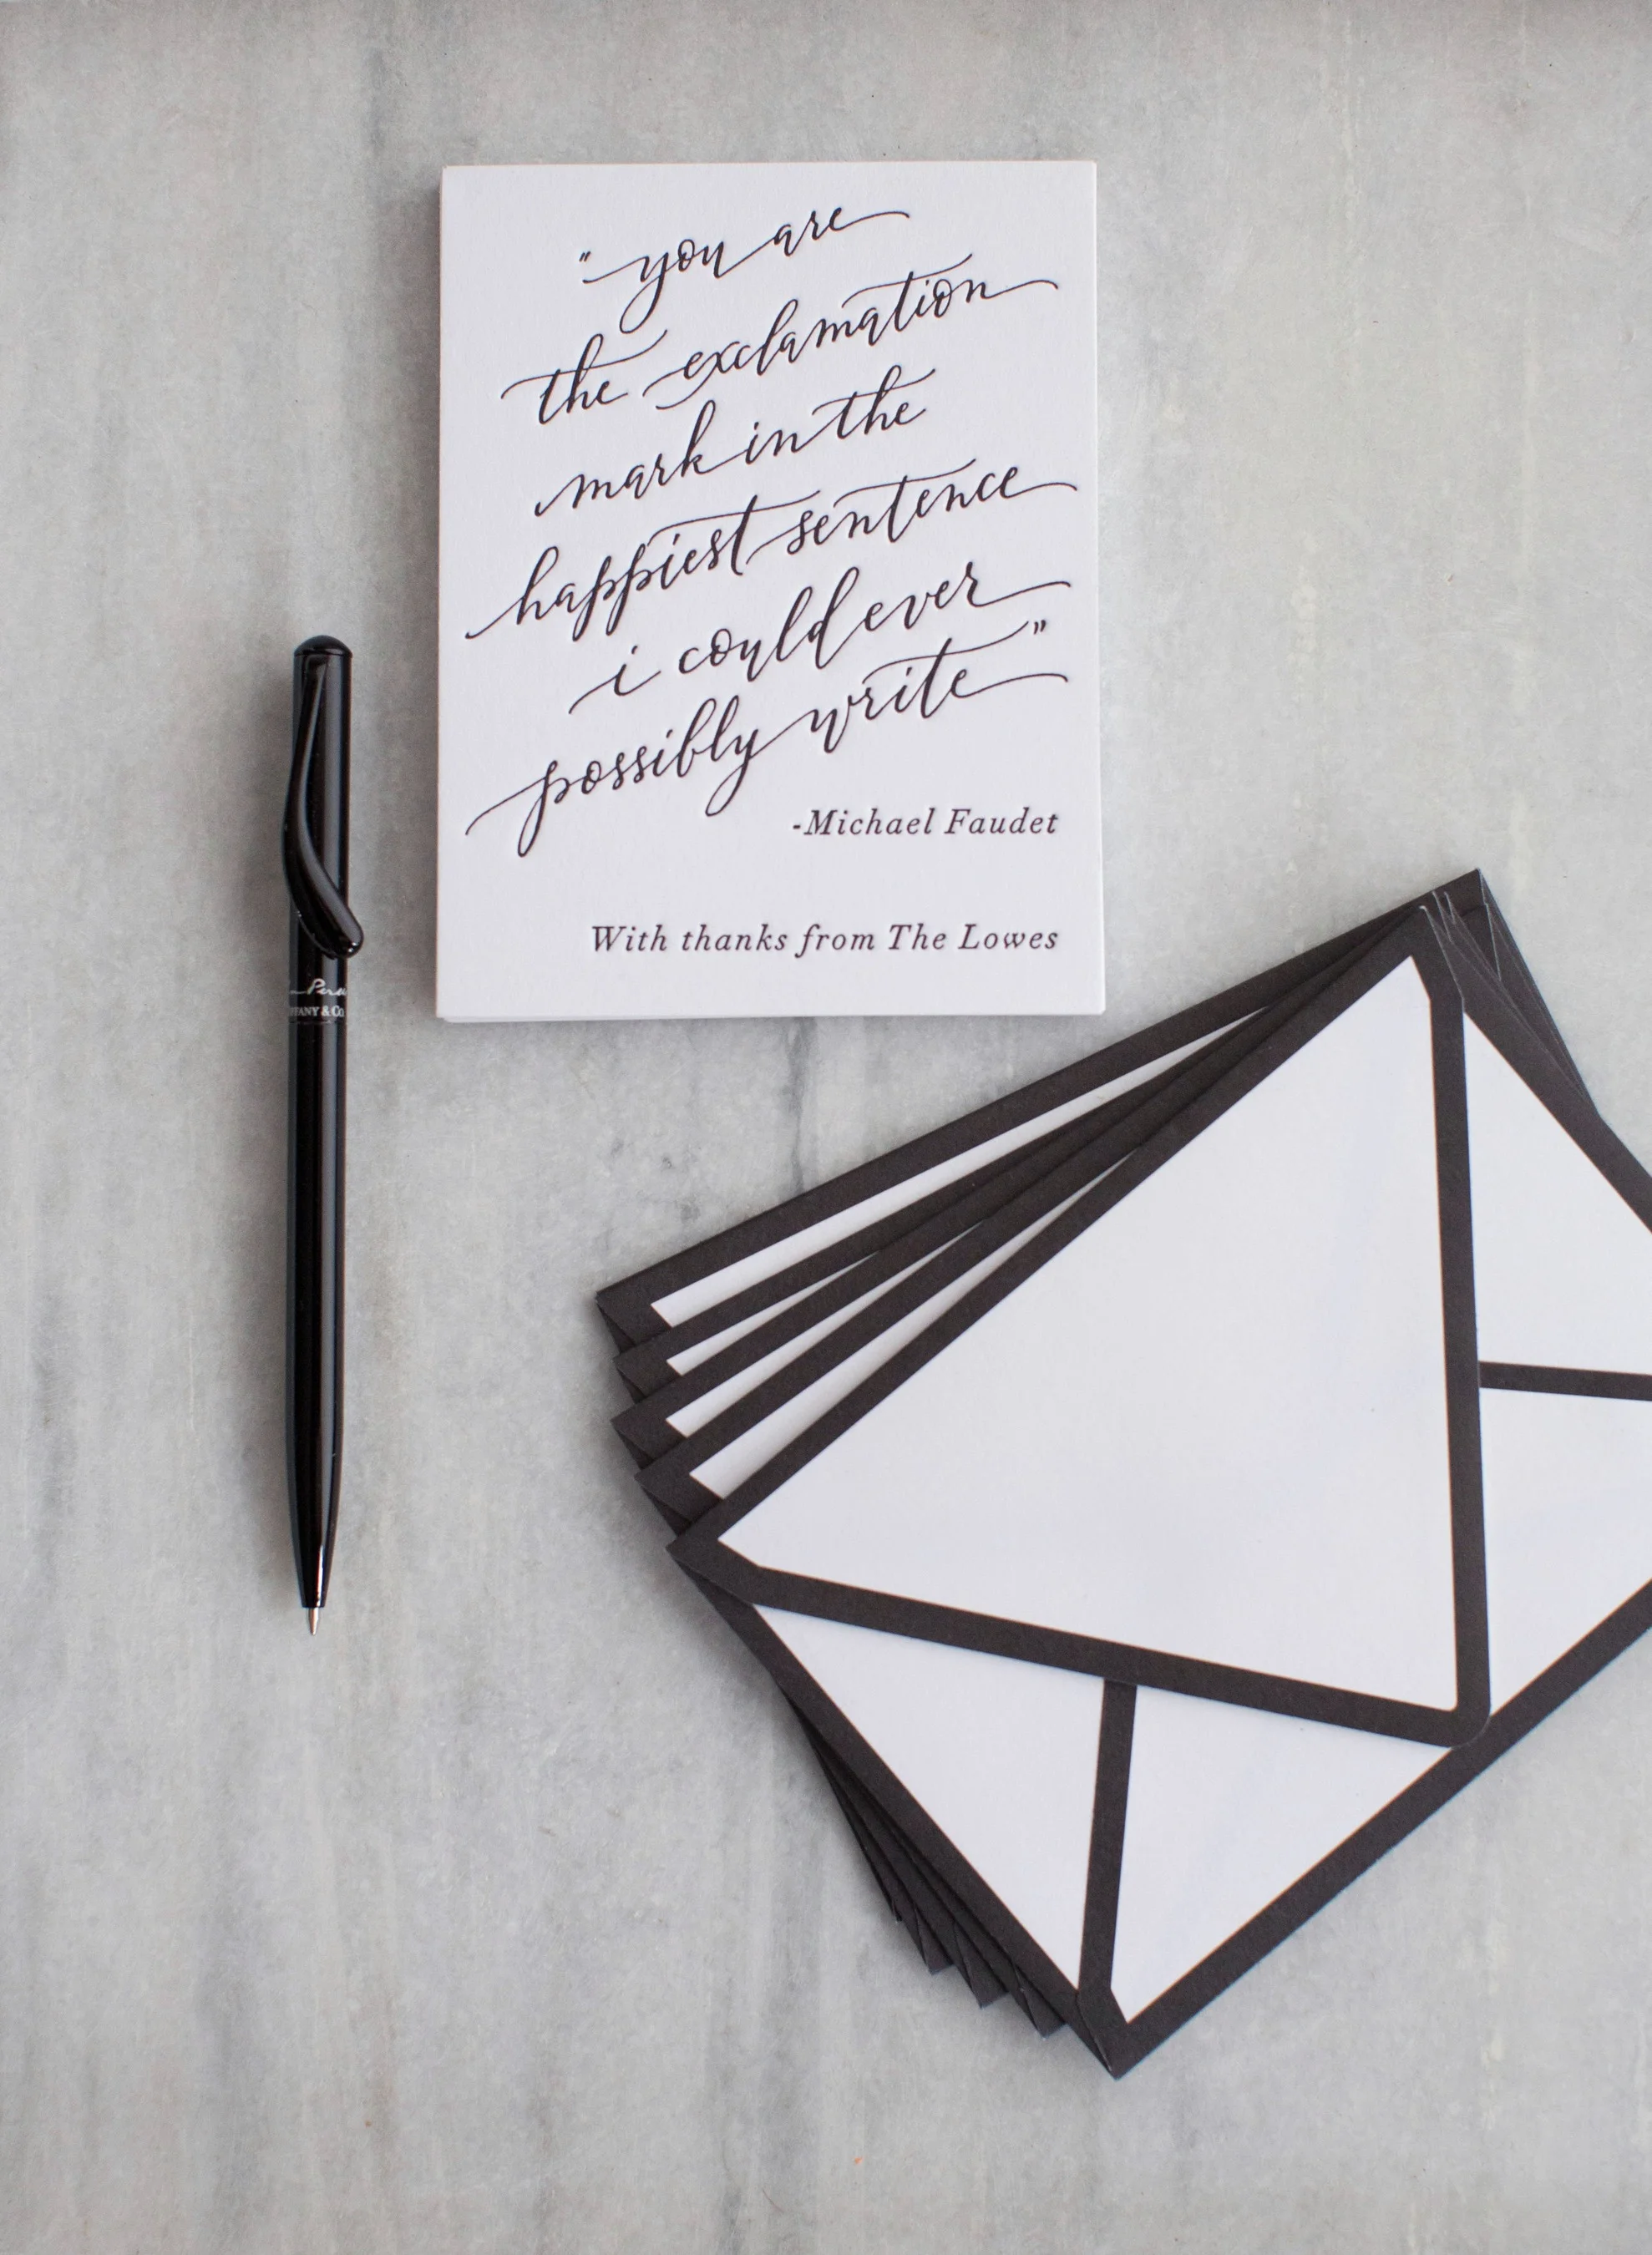 "you are
the exclamation
mark in the
happiest sentence
i could ever
possibly write"
-Michael Faudet
With thanks from The Lowes
& Co